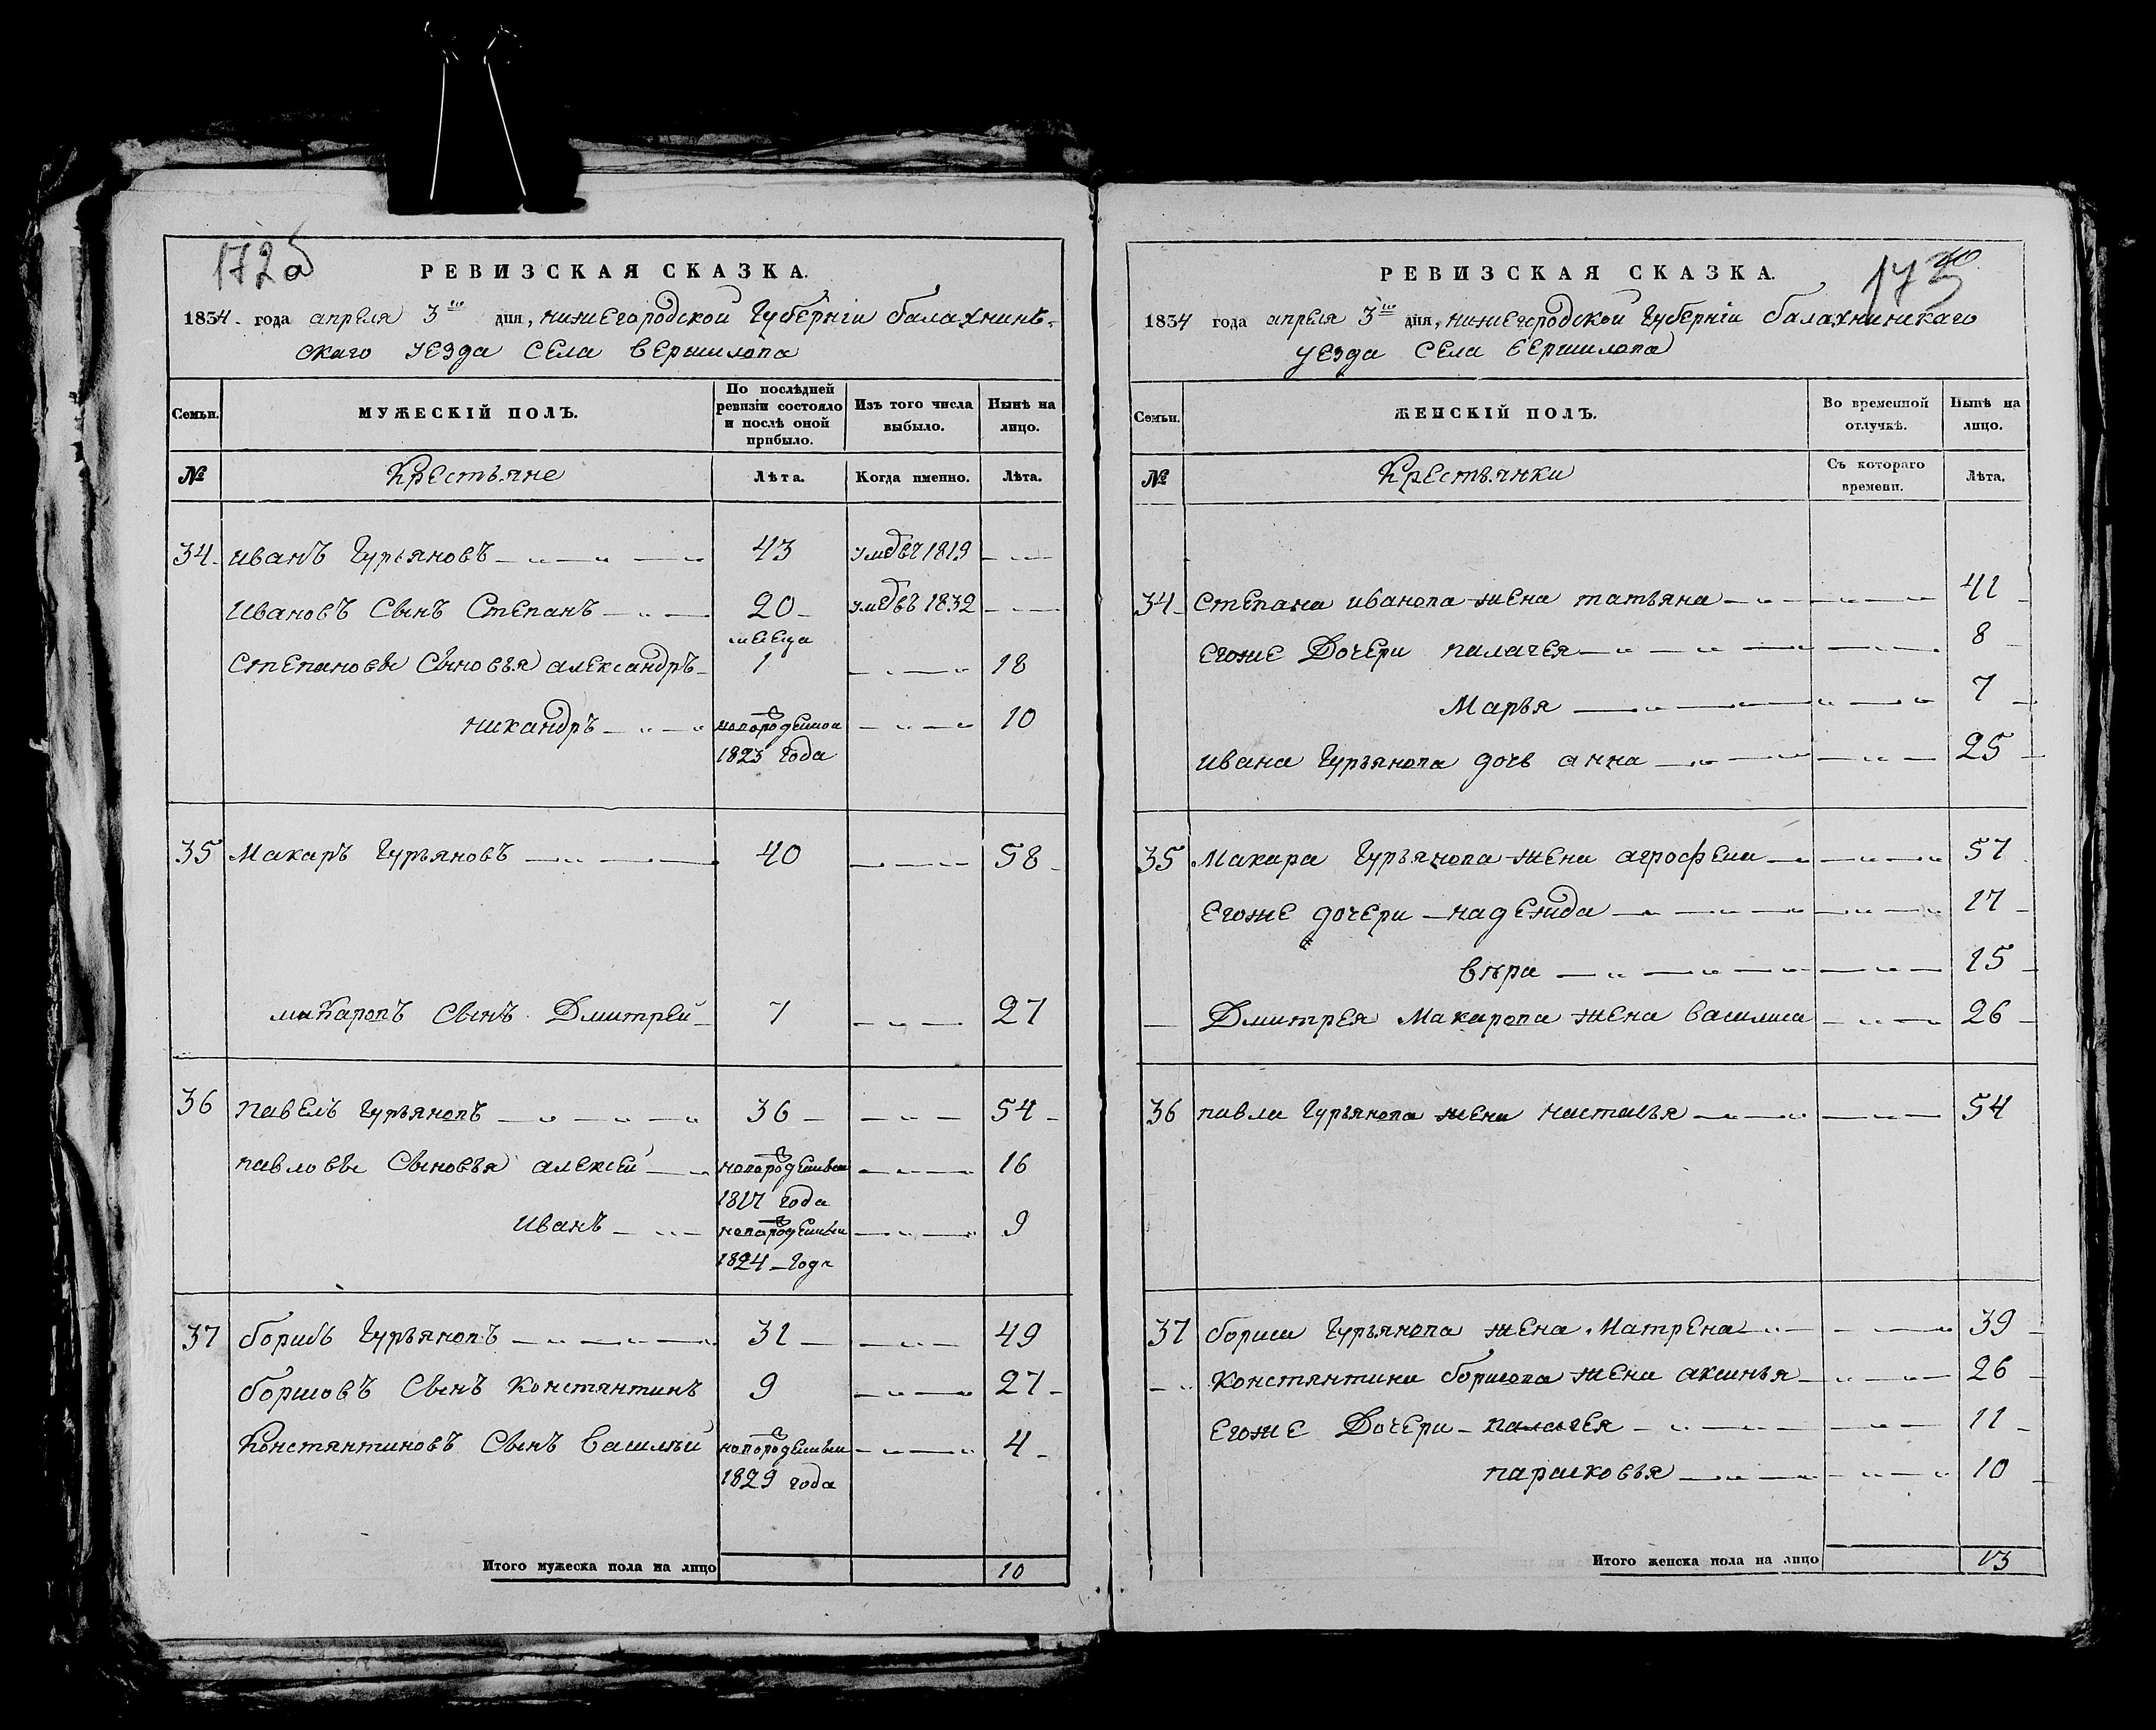 172 об
РЕВИЗСКАЯ СКАЗКА.
1834 года апреля 3го дня, нижегородской Губерніи балахнинъ-
скаго уезда Села вершилова
Семьи. МУЖЕСКІЙ ПОЛЪ. По послѣдней ревизіи состояло и послѣ оной прибыло. Изъ того числа выбыло. Нынѣ на лицо.
№ Крестьяне Лѣта. Когда именно. Лѣта.
34 иванъ Гурьяновъ 43 умре въ 1819
Ивановъ Сынъ Степанъ 20 умре въ 1832
месеца
Степановы Сыновья александръ 1 18
никандръ новорожденой 10
1823 года
35 Макаръ Гурьяновъ 40 58
макаровъ Сынъ Дмитрей 7 27
36 павелъ Гурьяновъ 36 54
павловы Сыновья алексей новорожденый 16
1817 года
иванъ новорожденый 9
1824 года
37 борисъ Гурьяновъ 31 49
борисовъ Сынъ констянтинъ 9 27
Констянтиновъ Сынъ василий новорожденый 4
1829 года
Итого мужеска пола на лицо 10
173
40
РЕВИЗСКАЯ СКАЗКА.
1834 года апреля 3го дня, нижегородской Губерніи балахнинскаго
уезда Села вершилова
Семьи. ЖЕНСКІЙ ПОЛЪ. Во временной отлучкѣ. Нынѣ на лицо.
№ Крестьянки Съ котораго времени. Лѣта.
34 Степана иванова жена татьяна 41
егоже Дочери палагея 8
Марья 7
ивана Гурьянова дочь анна 25
35 Макара Гурьянова жена агрофена 57
егоже дочери надежда 17
вѣра 15
Дмитрея Макарова жена василиса 26
36 павла Гурьянова жена настасья 54
37 бориса Гурьянова жена Матрена 39
Констянтина борисова жена аксинья 26
егоже Дочери палагея 11
парасковья 10
Итого женска пола на лицо 13